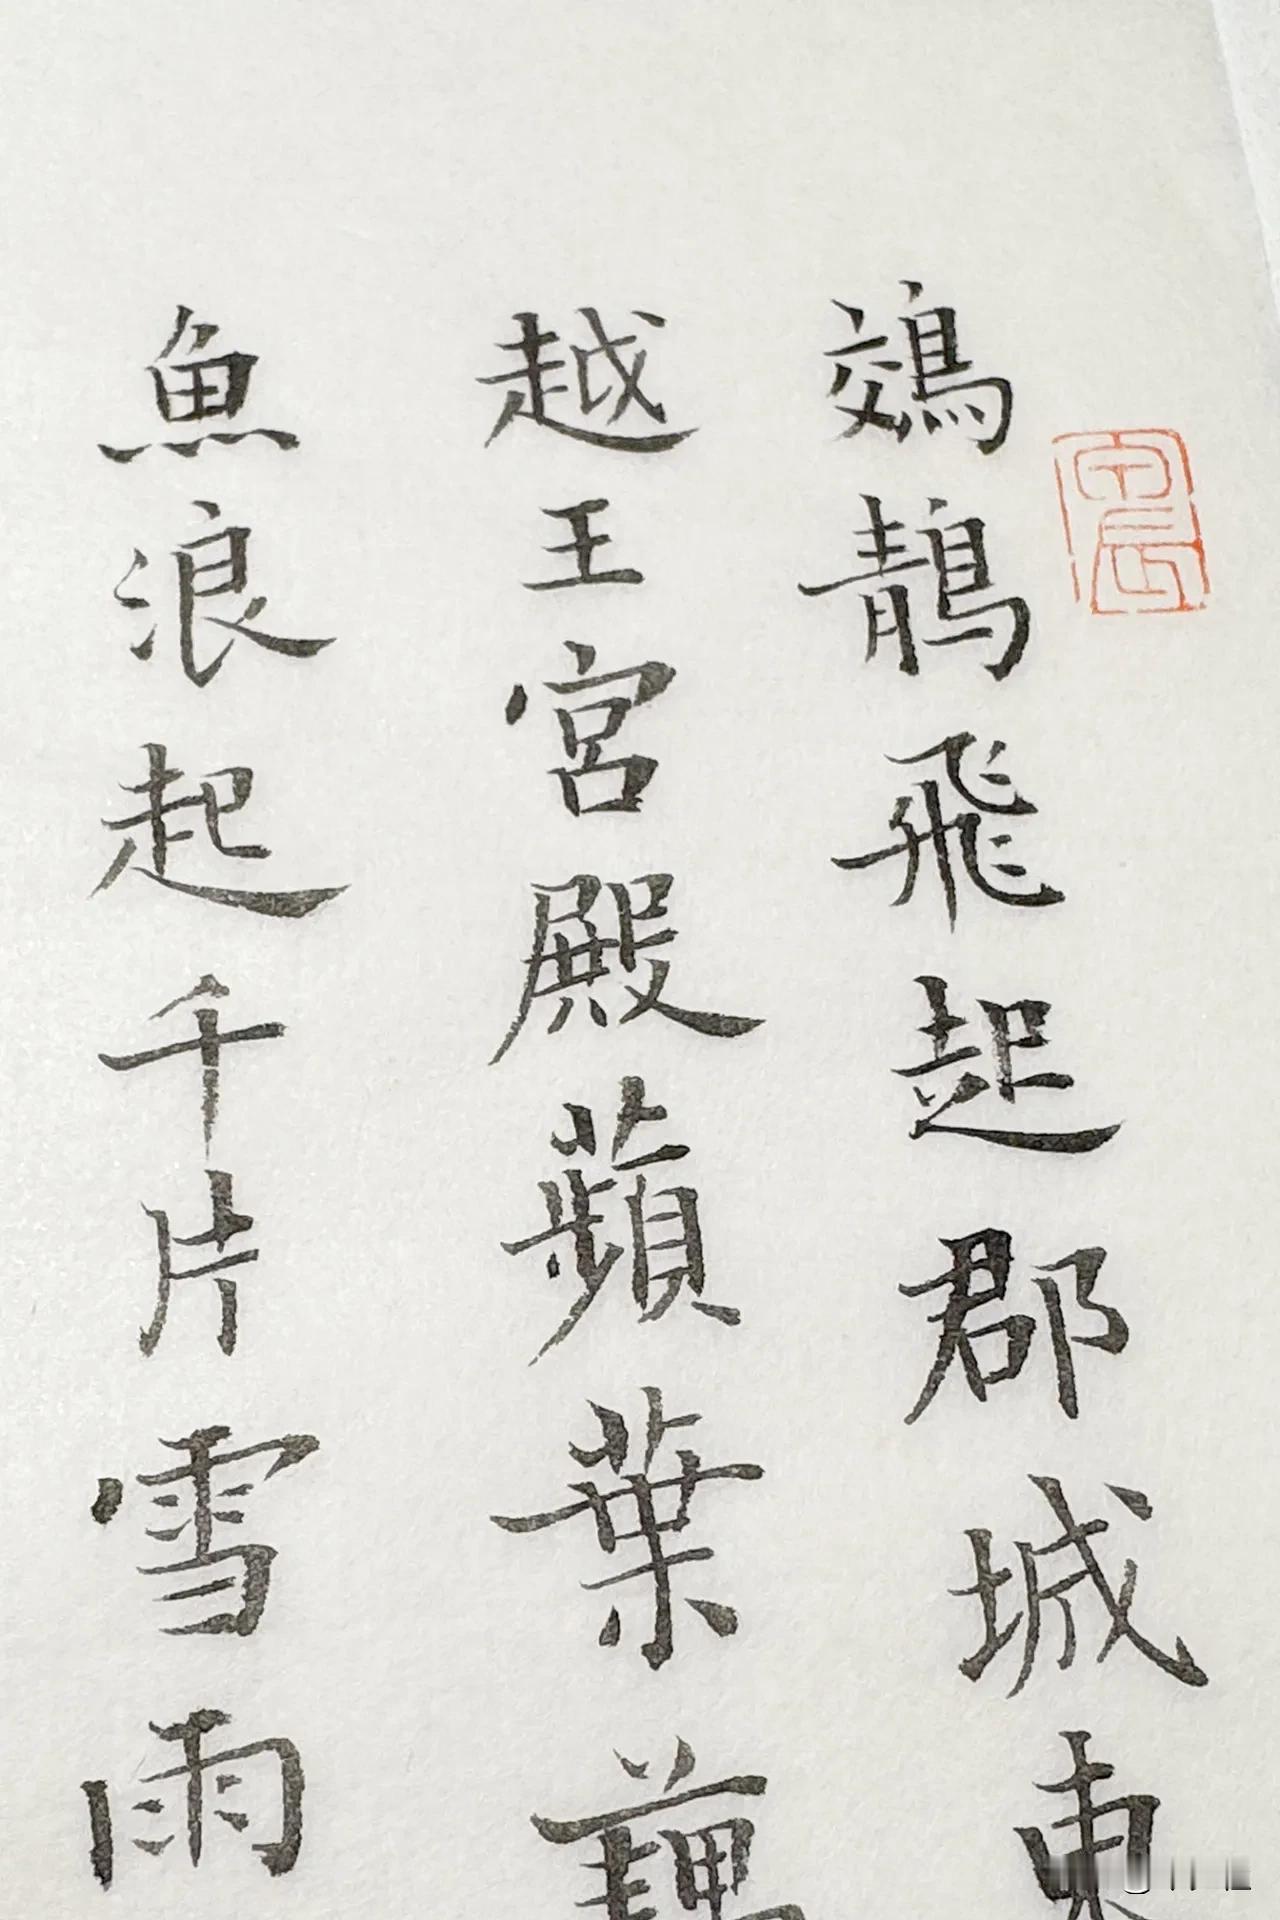 鵁鶄飛起郡城東
越王宮殿蘋葉藕
魚浪起千片雪雨